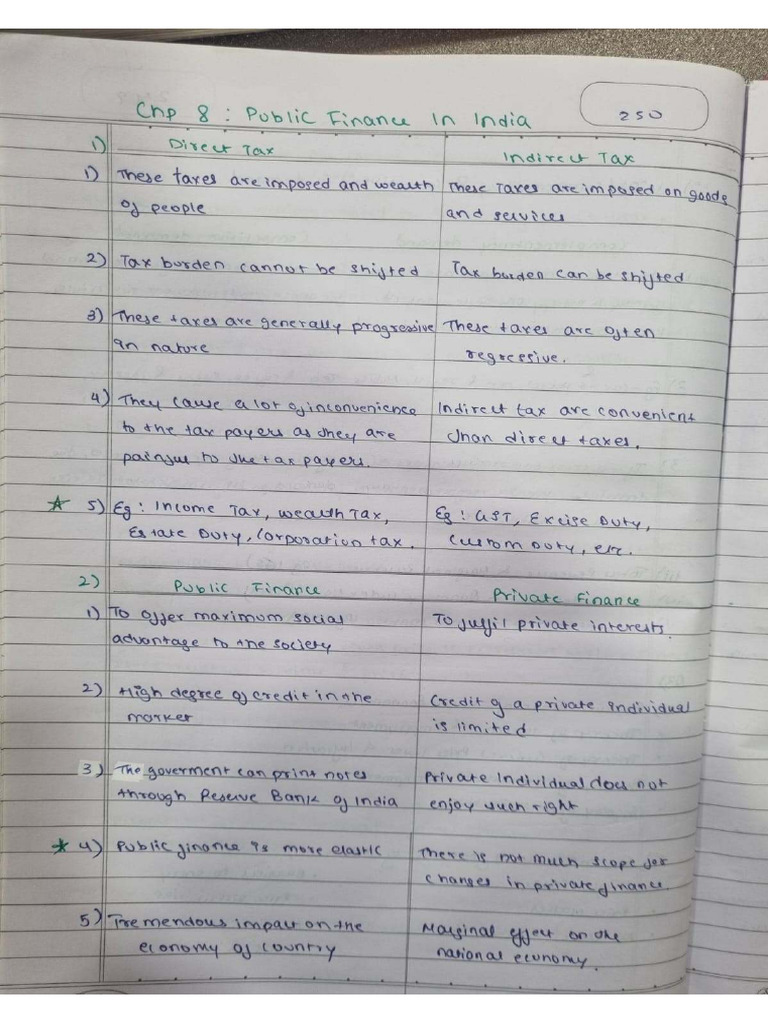 Chp 8 : Public Finance In India
250
1) Direct Tax
Indirect Tax
1) These taxes are imposed and wealth
of people
These Taxes are imposed on goods
and services
2) Tax burden cannot be shifted
Tax burden can be shifted
3) These taxes are generally progressive
in nature
These taxes are often
regressive.
4) They cause a lot of inconvenience
to the tax payers as they are
painful to the tax payers.
Indirect tax are convenient
than direct taxes.
★ 5) Eg : Income Tax, Wealth Tax,
Estate Duty, Corporation tax.
Eg : GST, Excise Duty,
Custom Duty, etc.
2) Public Finance
Private Finance
1) To offer maximum social
advantage to the society
To fulfil private interests.
2) High degree of credit in the
market
Credit of a private individual
is limited
3) The goverment can print notes
through Reserve Bank of India
Private individual does not
enjoy such right
★ 4) Public finance is more elastic
There is not much scope for
changes in private finance.
5) Tremendous impact on the
economy of country
Marginal effect on the
national economy.